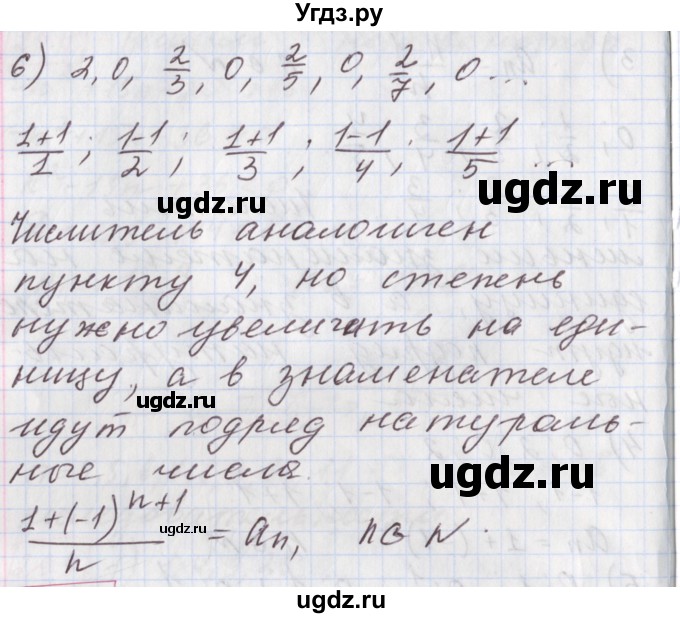 Угdz.ру
6) 2, 0, 2/3, 0, 2/5, 0, 2/7, 0...
(1+1)/1; (1-1)/2; (1+1)/3; (1-1)/4; (1+1)/5 ...
ugdz.ru
ugdz.ru
Числитель аналогичен
пункту 4, но степень
нужно увеличить на еди-
ugdz.ru
ницу, а в знаменателе
ugdz.ru
идут подряд натураль-
ные числа.
ugdz.ru
(1+(-1)^(n+1))/n = aₙ, n ∈ N.
ugdz.ru
ugdz.ru